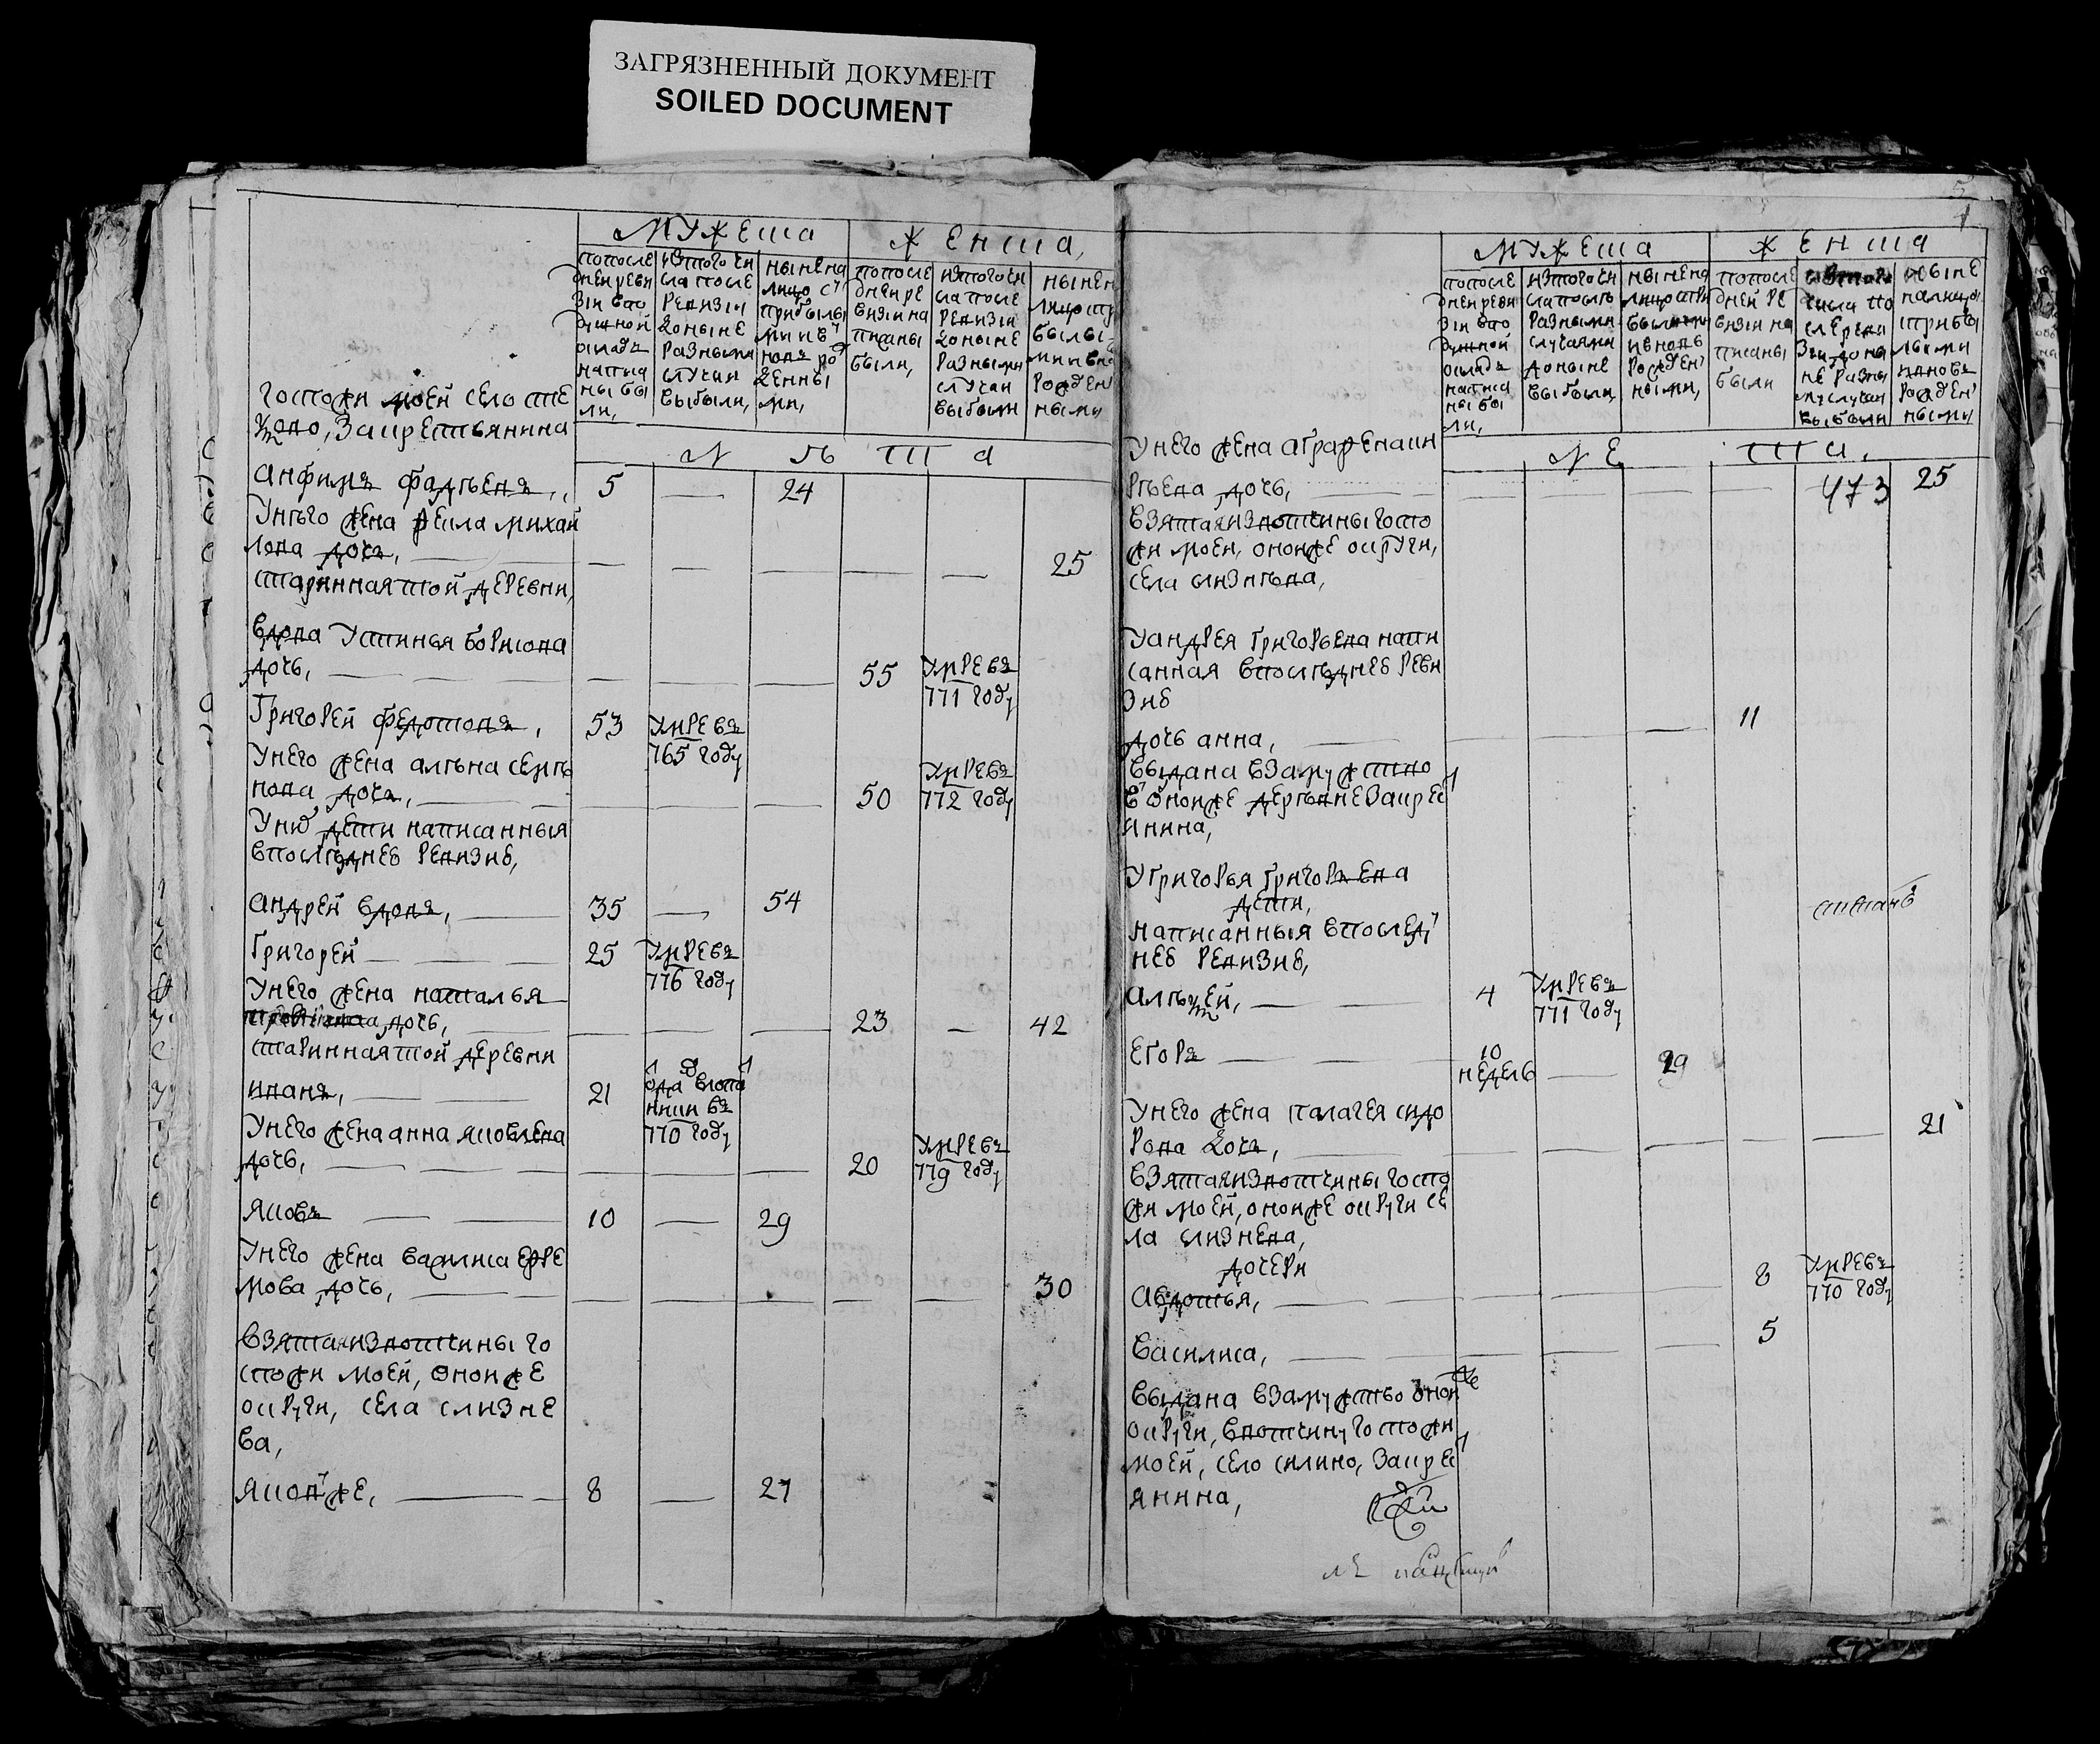 ЗАГРЯЗНЕННЫЙ ДОКУМЕНТ
SOILED DOCUMENT
мужеска
женска,
попосле
дней реви
зіи впо
душной
окладъ
написа
ны бы
ли,
изтого чи
сла после
ревизіи
доныне
разными
случаи
выбыли,
ныне на
лицо съ
прибылы
ми и въ
новь ро
жденны
ми,
попосле
дней ре
визіи на
писаны
были,
изтого чи
сла после
ревизіи
доныне
разными
случаи
выбыли
ныне н
лицо пр
былы
ми и вно
рожден
ными
лѣта
госпожи моей село сте
ково, за крестьянина
анфимъ фадѣевъ,
5 — 24
у нѣго жена фекла михаи
лова дочь,
25
старинная той деревни,
вдова устинья борисова
дочь,
55 умре въ
771 году
григорей федотовъ,
53 умре въ
765 году
у него жена алѣна семѣ
нова дочь,
50 умре въ
772 году
у них дети написанныя
в последней ревизии,
андрей вдовъ,
35 — 54
григорей
25 умре въ
776 году
у него жена наталья
дочь,
23 — 42
старинная той деревни
иванъ,
21
770 году
у него жена анна яковлева
дочь,
20 умре въ
779 году
яковъ
10 — 29
у него жена василиса ефре
мова дочь,
30
взятая из вотчины го
спожи моей, оной же
округи, села слизне
ва,
яков же,
8 — 27
мужеска
женска
попосле
дней реви
зіи впо
душной
окладъ
написа
ны бы
ли,
изтого чи
сла послѣ
разными
случаями
доныне
выбыли,
ныне на
лицо спри
былыми
и вновь
рожден
ными,
попосле
дней ре
визіи на
писаны
были
числа по
сле реви
зіи доны
не разны
ми случаи
выбыли
ныне
на лицо
прибы
лыми
и вновь
рожден
ными
лета.
у него жена аграфена ан
рѣева дочь,
473 25
взятая из вотчины госпо
жи моей, оной же округи,
села слизнѣва,
у андрея григорьева напи
санная в послѣдней реви
зии
дочь анна,
11
выдана в замужство
в оной же деревне за крес
янина,
у григорья григорьева
дети,
написанныя в послед
ней ревизии,
алѣксей,
4 умре въ
771 году
егоръ
10
недель — 29
у него жена палагея сидо
рова дочь,
21
взятая из вотчины госпо
жи моей, оной же округи се
ла слизнева,
дочери
авдотья,
8 умре въ
770 году
василиса,
5
выдана в замужство оной же
округи, в вотчину госпожи
моей, село силино, за крес
янина,